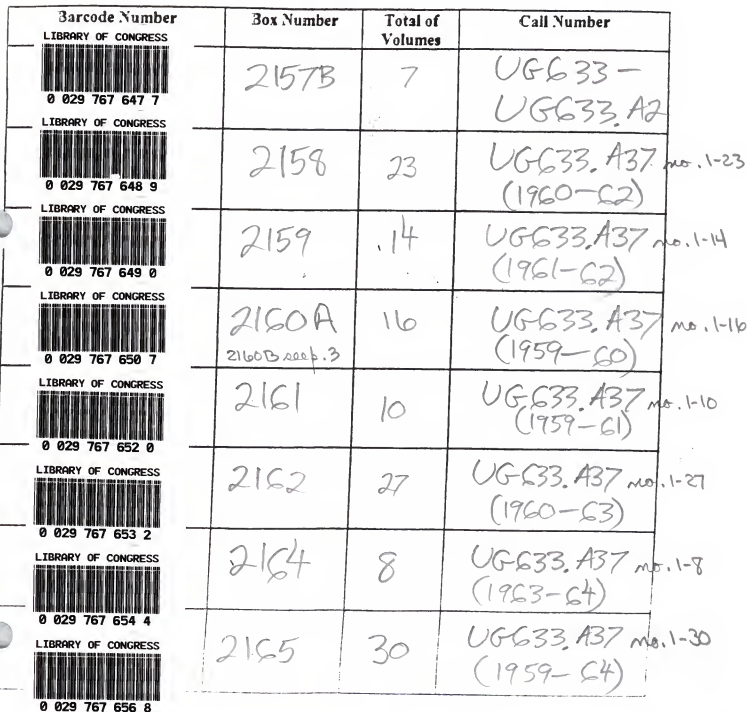 Barcode Number Box Number Total of Volumes Call Number
LIBRARY OF CONGRESS
0 029 767 647 7
2157B 7 UG633 -
UG633.A2
LIBRARY OF CONGRESS
0 029 767 648 9
2158 23 UG633.A37 no.1-23
(1960-62)
LIBRARY OF CONGRESS
0 029 767 649 0
2159 .14 UG633.A37 no.1-14
(1961-62)
LIBRARY OF CONGRESS
0 029 767 650 7
2160A 16 UG633.A37 no.1-16
2160B see p.3 (1959-60)
LIBRARY OF CONGRESS
0 029 767 652 0
2161 10 UG633.A37 no.1-10
(1959-61)
LIBRARY OF CONGRESS
0 029 767 653 2
2162 27 UG633.A37 no.1-27
(1960-63)
LIBRARY OF CONGRESS
0 029 767 654 4
2164 8 UG633.A37 no.1-8
(1963-64)
LIBRARY OF CONGRESS
0 029 767 656 8
2165 30 UG633.A37 no.1-30
(1959-64)